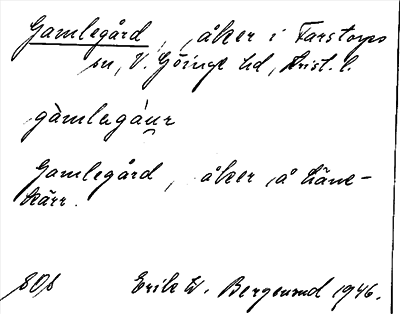 Gamlegård, åker i Farstorps
sn, V. Göinge hd, Krist. l.
gàmlagàu̯r
Gamlegård, åker å Läne-
kärr.
Erik W. Bergeund 1946.